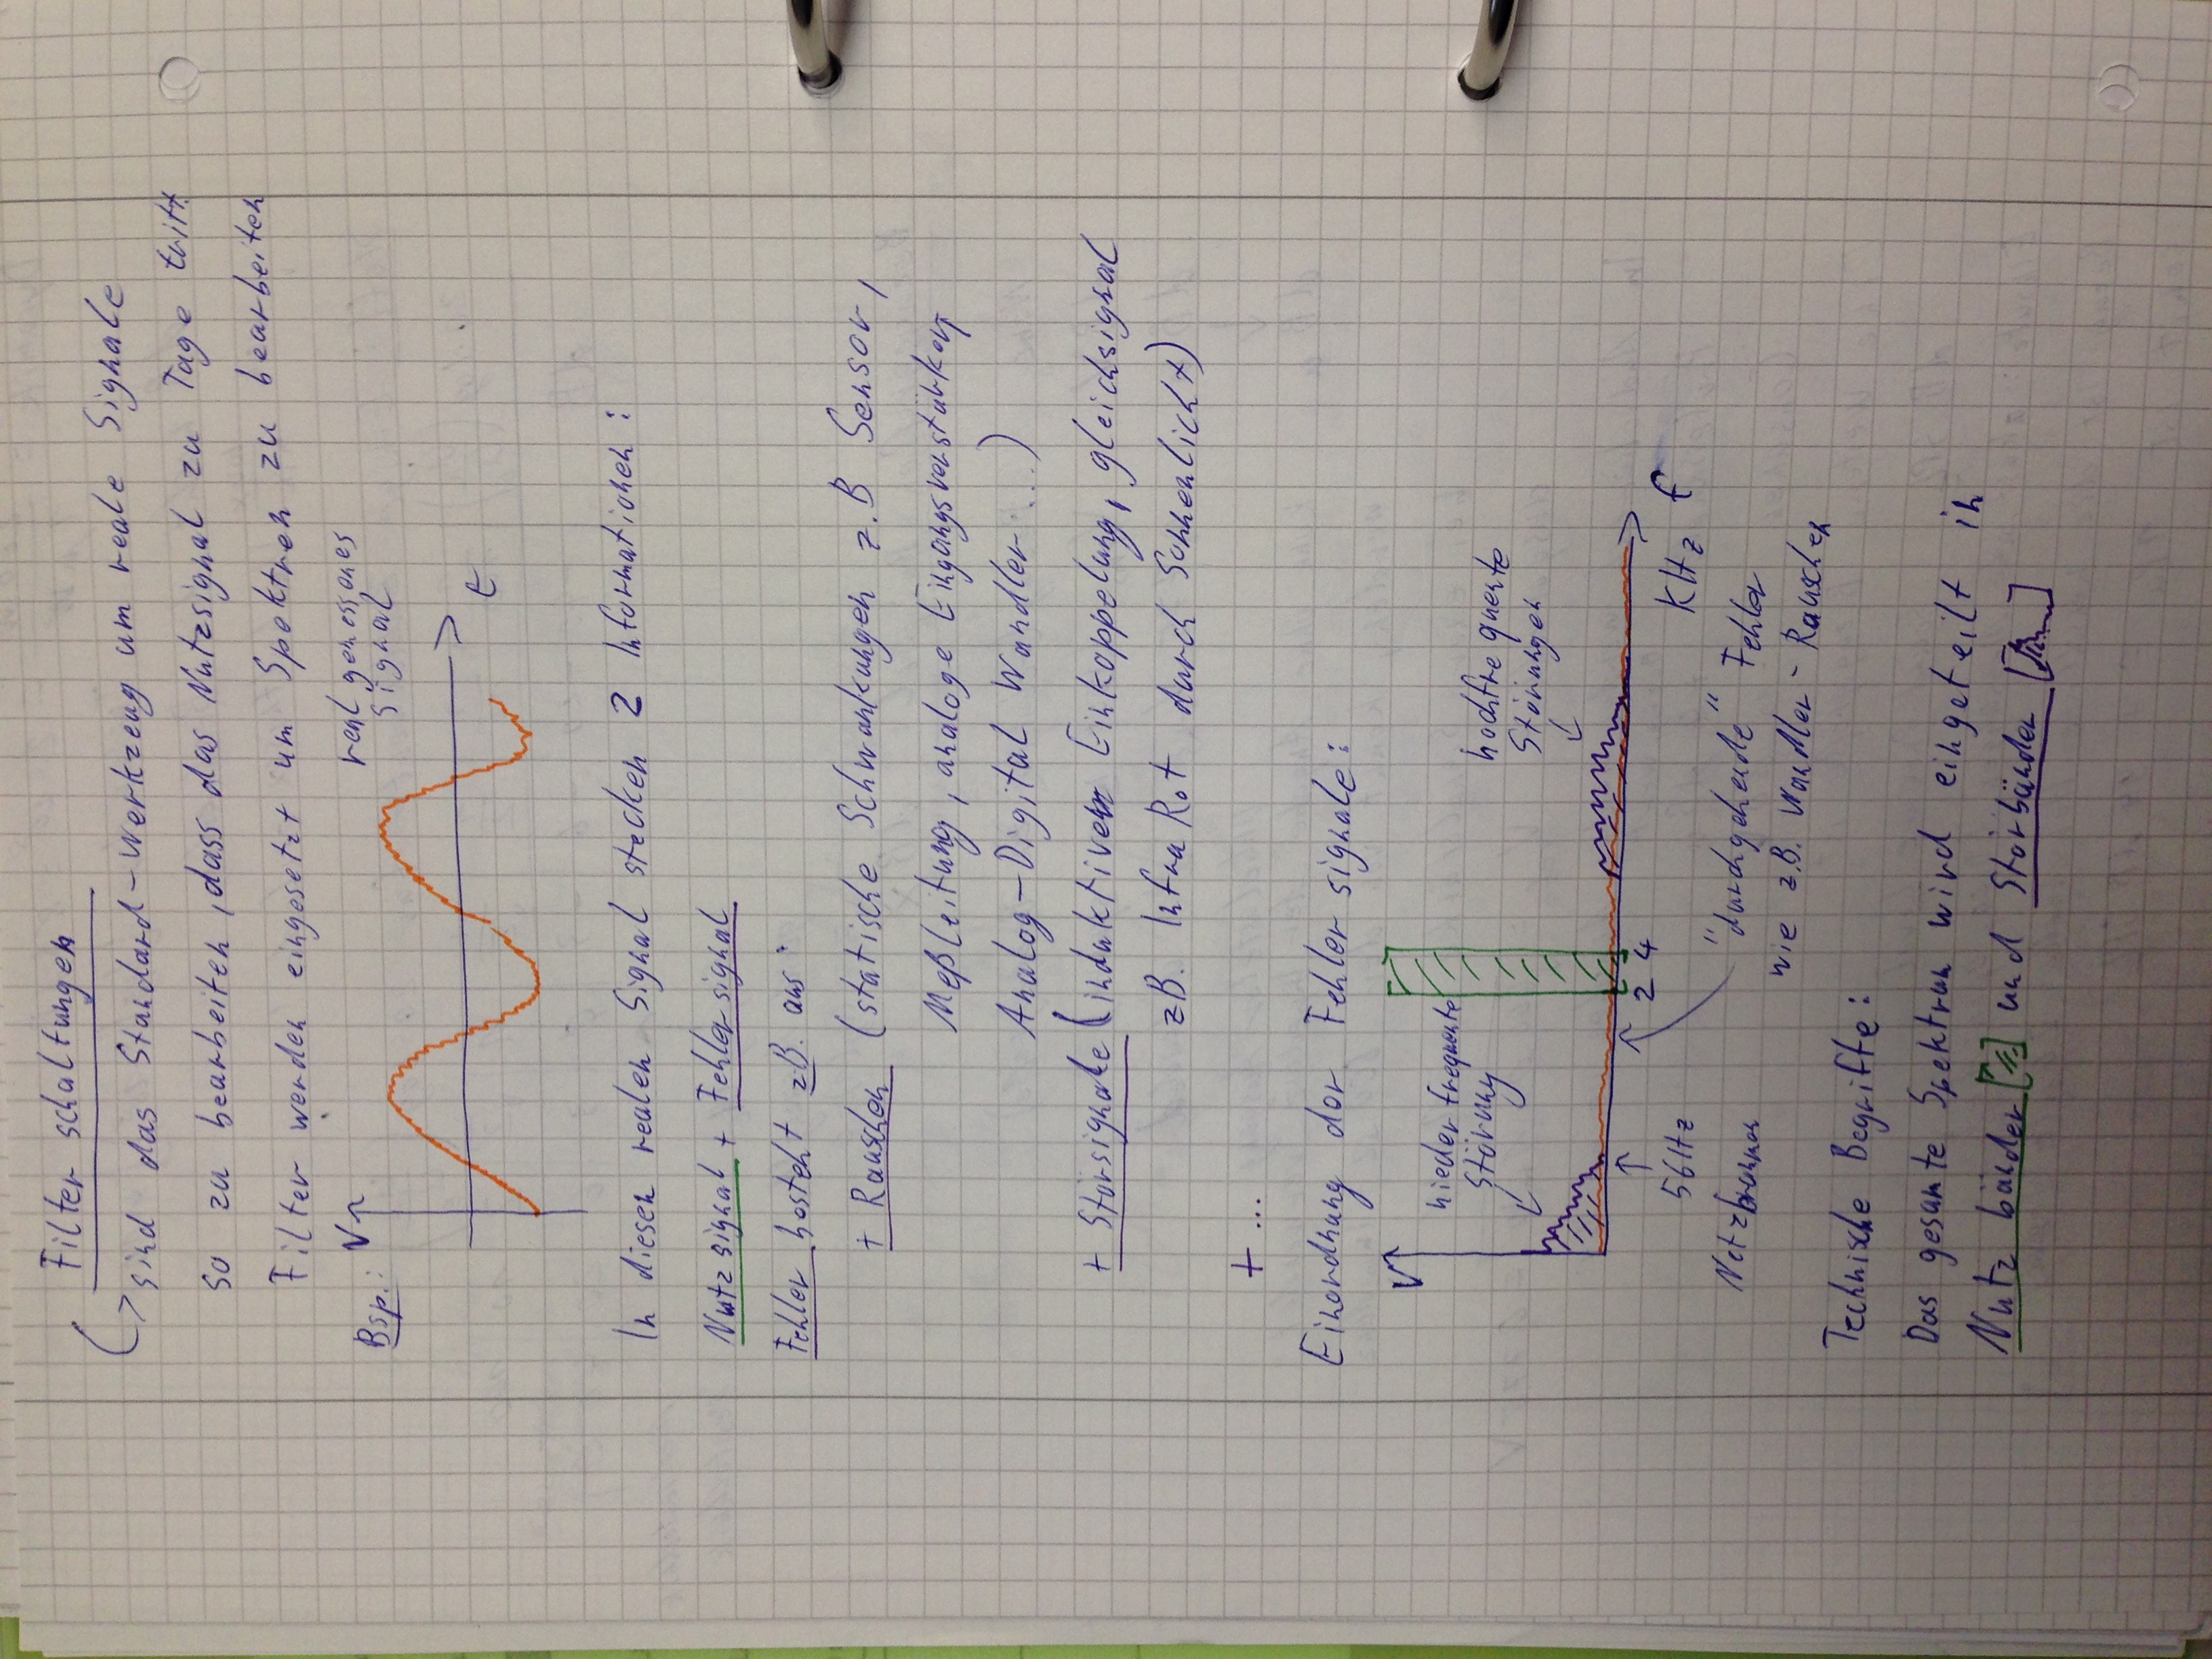 Filterschaltungen
sind das Standard-Werkzeug um reale Signale
so zu bearbeiten, dass das Nutzsignal zu Tage tritt.
Filter werden eingesetzt um Spektren zu bearbeiten
Bsp.: V real gemessenes
signal
t
In diesen realen Signal stecken 2 Informationen:
Nutzsignal + Fehlersignal
Fehler besteht z.B. aus:
+ Rauschen (statische Schwankungen z.B Sensor,
Meßleitung, analoge Eingangsverstärker,
Analog-Digital Wandler ...)
+ Störsignale (induktiven Einkoppelung, gleichsignal
zB. Infra Rot durch Sonnenlicht)
+ ...
Einordnung der Fehlersignale:
V
niederfrequente
Störung
hochfrequente
Störungen
2 4
56Hz
KHz f
Netzbrummen
"durchgehende" Fehler
wie z.B. Wandler-Rauschen
Technische Begriffe:
Das gesamte Spektrum wird eingeteilt in
Nutzbänder [ ] und Störbänder [ ]